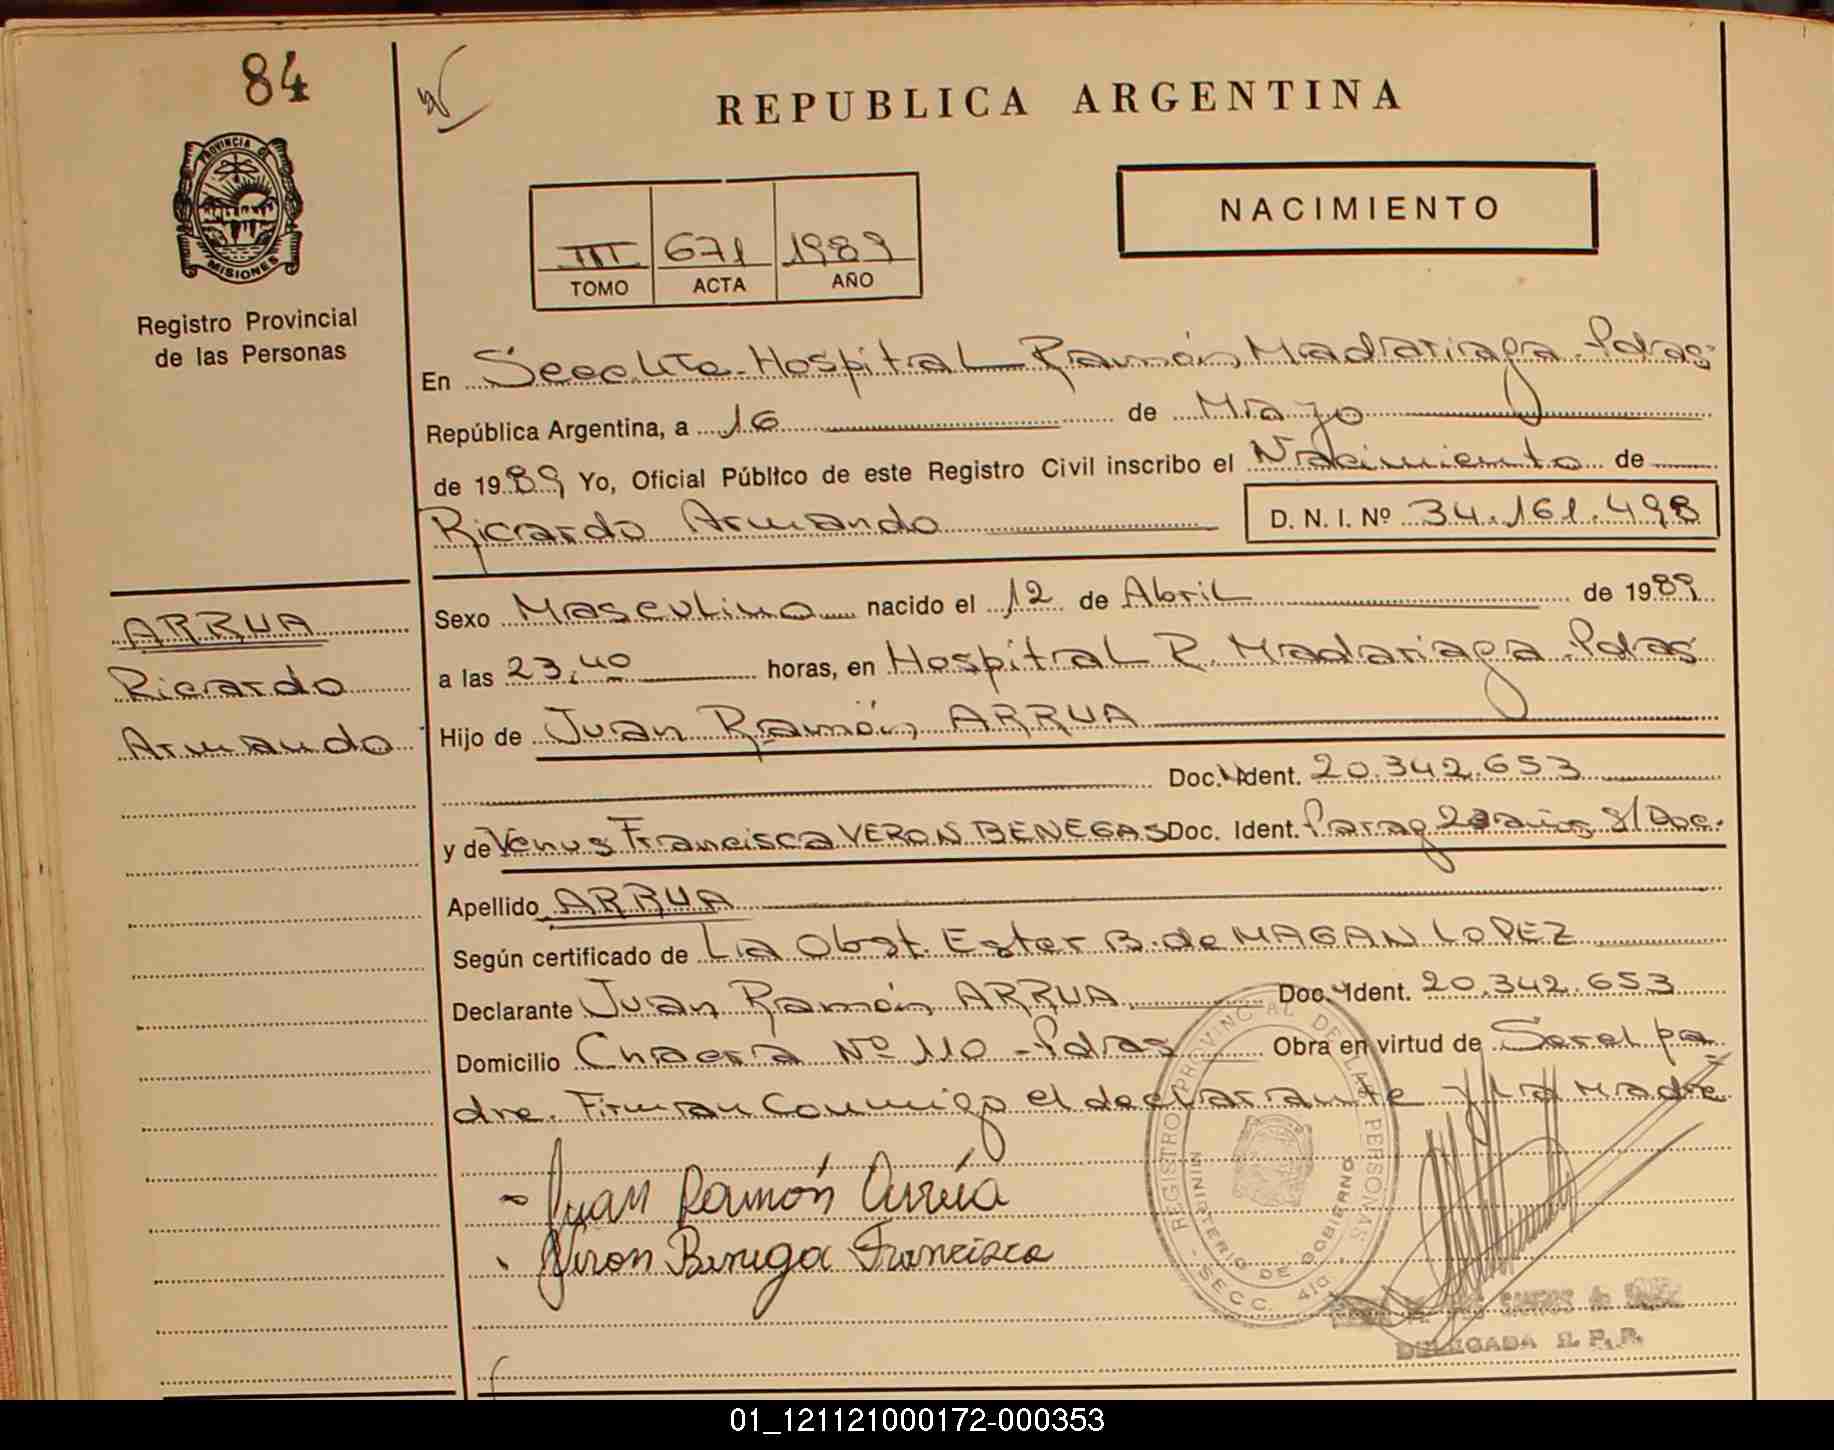 84
REPUBLICA ARGENTINA
PROVINCIA DE
MISIONES
Registro Provincial
de las Personas
III 671 1989
TOMO ACTA AÑO
NACIMIENTO
En Secc. 4ta. Hospital Ramón Madariaga - Pdas
República Argentina, a 16 de Mayo
de 1989 Yo, Oficial Público de este Registro Civil inscribo el Nacimiento de
Ricardo Armando D. N. I. Nº 34.161.498
ARRUA
Ricardo
Armando
Sexo Masculino nacido el 12 de Abril de 1989
a las 23,40 horas, en Hospital R. Madariaga - Pdas
Hijo de Juan Ramón ARRUA
Doc. Ident. 20.342.653
y de Venus Francisca VERON BENEGAS Doc. Ident. Parag 20 años S/Doc.
Apellido ARRUA
Según certificado de La Obst. Ester B. de MAGAN LOPEZ
Declarante Juan Ramón ARRUA Doc. Ident. 20.342.653
Domicilio Chacra Nº 110 - Pdas Obra en virtud de Ser el pa
dre. Firman conmigo el declarante y la Madre
- Juan Ramón Arrúa
Veron Benega Francisca
REGISTRO PROVINCIAL DE LAS PERSONAS
MINISTERIO DE GOBIERNO
SECC. 4ta
DELEGADA R. P. P.
01_121121000172-000353